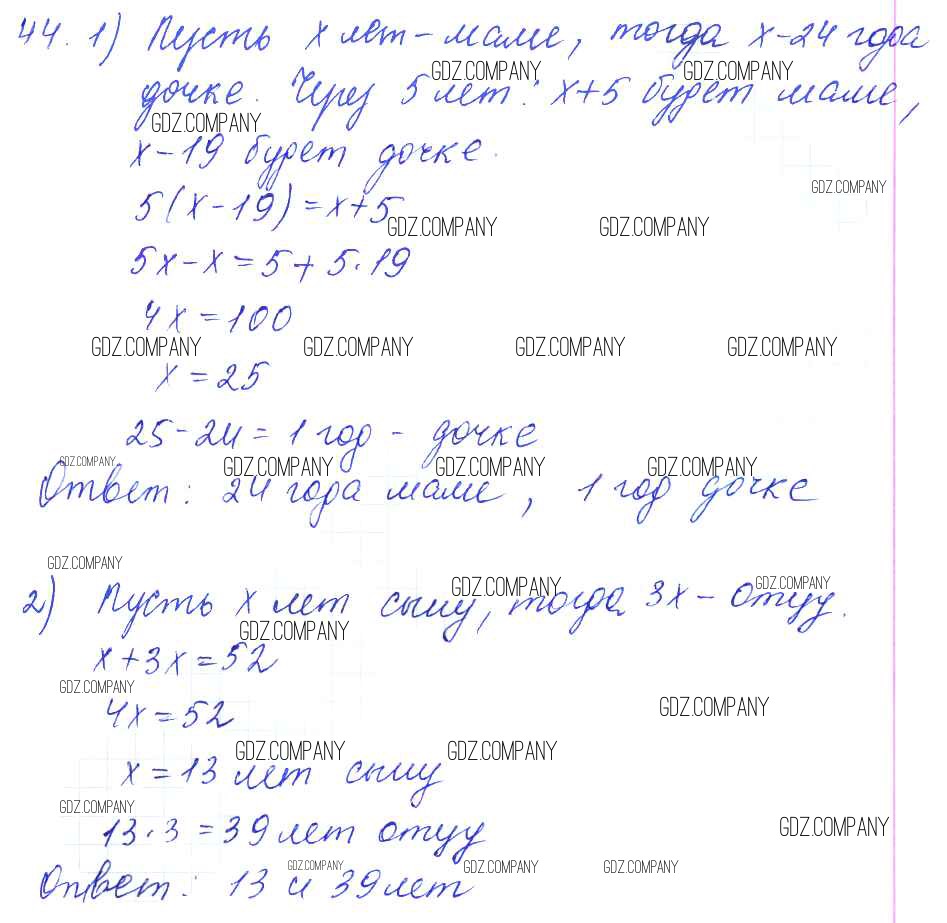 44. 1) Пусть x лет - маме, тогда x-24 года
GDZ.COMPANY GDZ.COMPANY
дочке. Через 5 лет: x+5 будет маме,
GDZ.COMPANY
x-19 будет дочке.
GDZ.COMPANY
5(x-19)=x+5
GDZ.COMPANY GDZ.COMPANY
5x-x=5+5·19
4x=100
GDZ.COMPANY GDZ.COMPANY GDZ.COMPANY GDZ.COMPANY
x=25
25-24=1 год - дочке
GDZ.COMPANY GDZ.COMPANY GDZ.COMPANY GDZ.COMPANY
Ответ: 24 года маме, 1 год дочке
GDZ.COMPANY
GDZ.COMPANY GDZ.COMPANY
2) Пусть x лет сыну, тогда 3x - отцу.
GDZ.COMPANY
x+3x=52
GDZ.COMPANY GDZ.COMPANY
4x=52
GDZ.COMPANY GDZ.COMPANY
x=13 лет сыну
GDZ.COMPANY GDZ.COMPANY
13·3=39 лет отцу
GDZ.COMPANY GDZ.COMPANY GDZ.COMPANY
Ответ: 13 и 39 лет